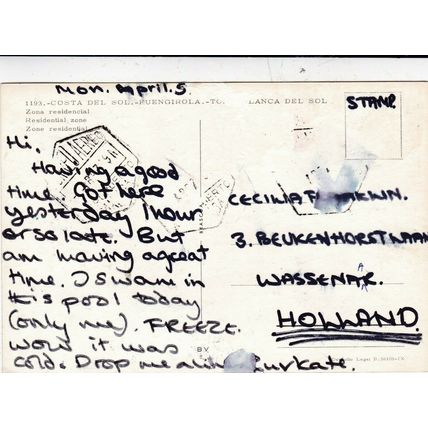 Mon. April. 5
1193.-COSTA DEL SOL.-FUENGIROLA.-TO LANCA DEL SOL
Zona residencial
Residential zone
Zone
Hi,
Having a good
time. Got here
yesterday 1 hour
or so late. But
am having a great
time. I swam in
this pool today
(only me). FREEZE.
wow it was
cold. Drop me a line Luv Kate.
STAMP
CECILIA
3. BEUKENHORSTLAAN
WASSENAAR.
HOLLAND
BV